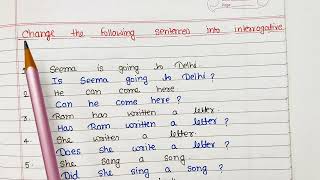 Change the following sentences into interrogative
1. Seema is going to Delhi.
Is Seema going to Delhi?
2. He can come here.
Can he come here?
3. Ram has written a letter.
Has Ram written a letter?
4. She writes a letter.
Does she write a letter?
5. She sang a song.
Did she sing a song?